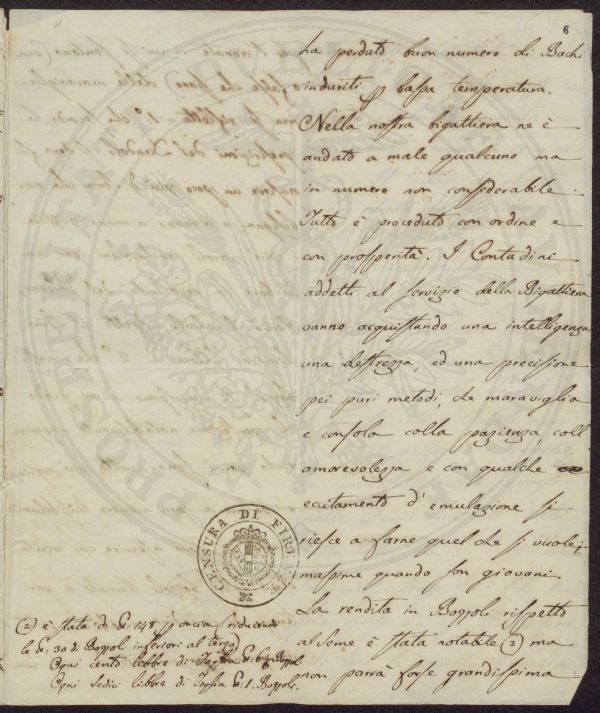 6
ha perduto buon numero di Bachi
induriti p bassa temperatura.
Nella nostra bigattiera ne è
andato a male qualcuno ma
in numero non considerabile.
Tutto è proceduto con ordine e
con prosperità. I Contadini
addetti al servizio della Bigattiera
vanno acquistando una intelligenza
una destrezza, ed una precisione
pei puri metodi, che maraviglia
e consola colla pazienza, coll
amorevolezza e con qualche
eccitamento d'emulazione si
riesce a farne quel che si vuole,
massime quando son giovani.
La rendita in Bozzoli rispetto
al seme è stata notabile (2) ma
non parrà forse grandissima
CENSURA DI FIRENZE
(2) è stata di £: 148 p oncia (riducendo
le £: 30 di Bozzoli inferiori al terzo)
Ogni cento libbre di Foglia £: Bozzoli
Ogni sedici libbre di Foglia £: 1. Bozzoli.